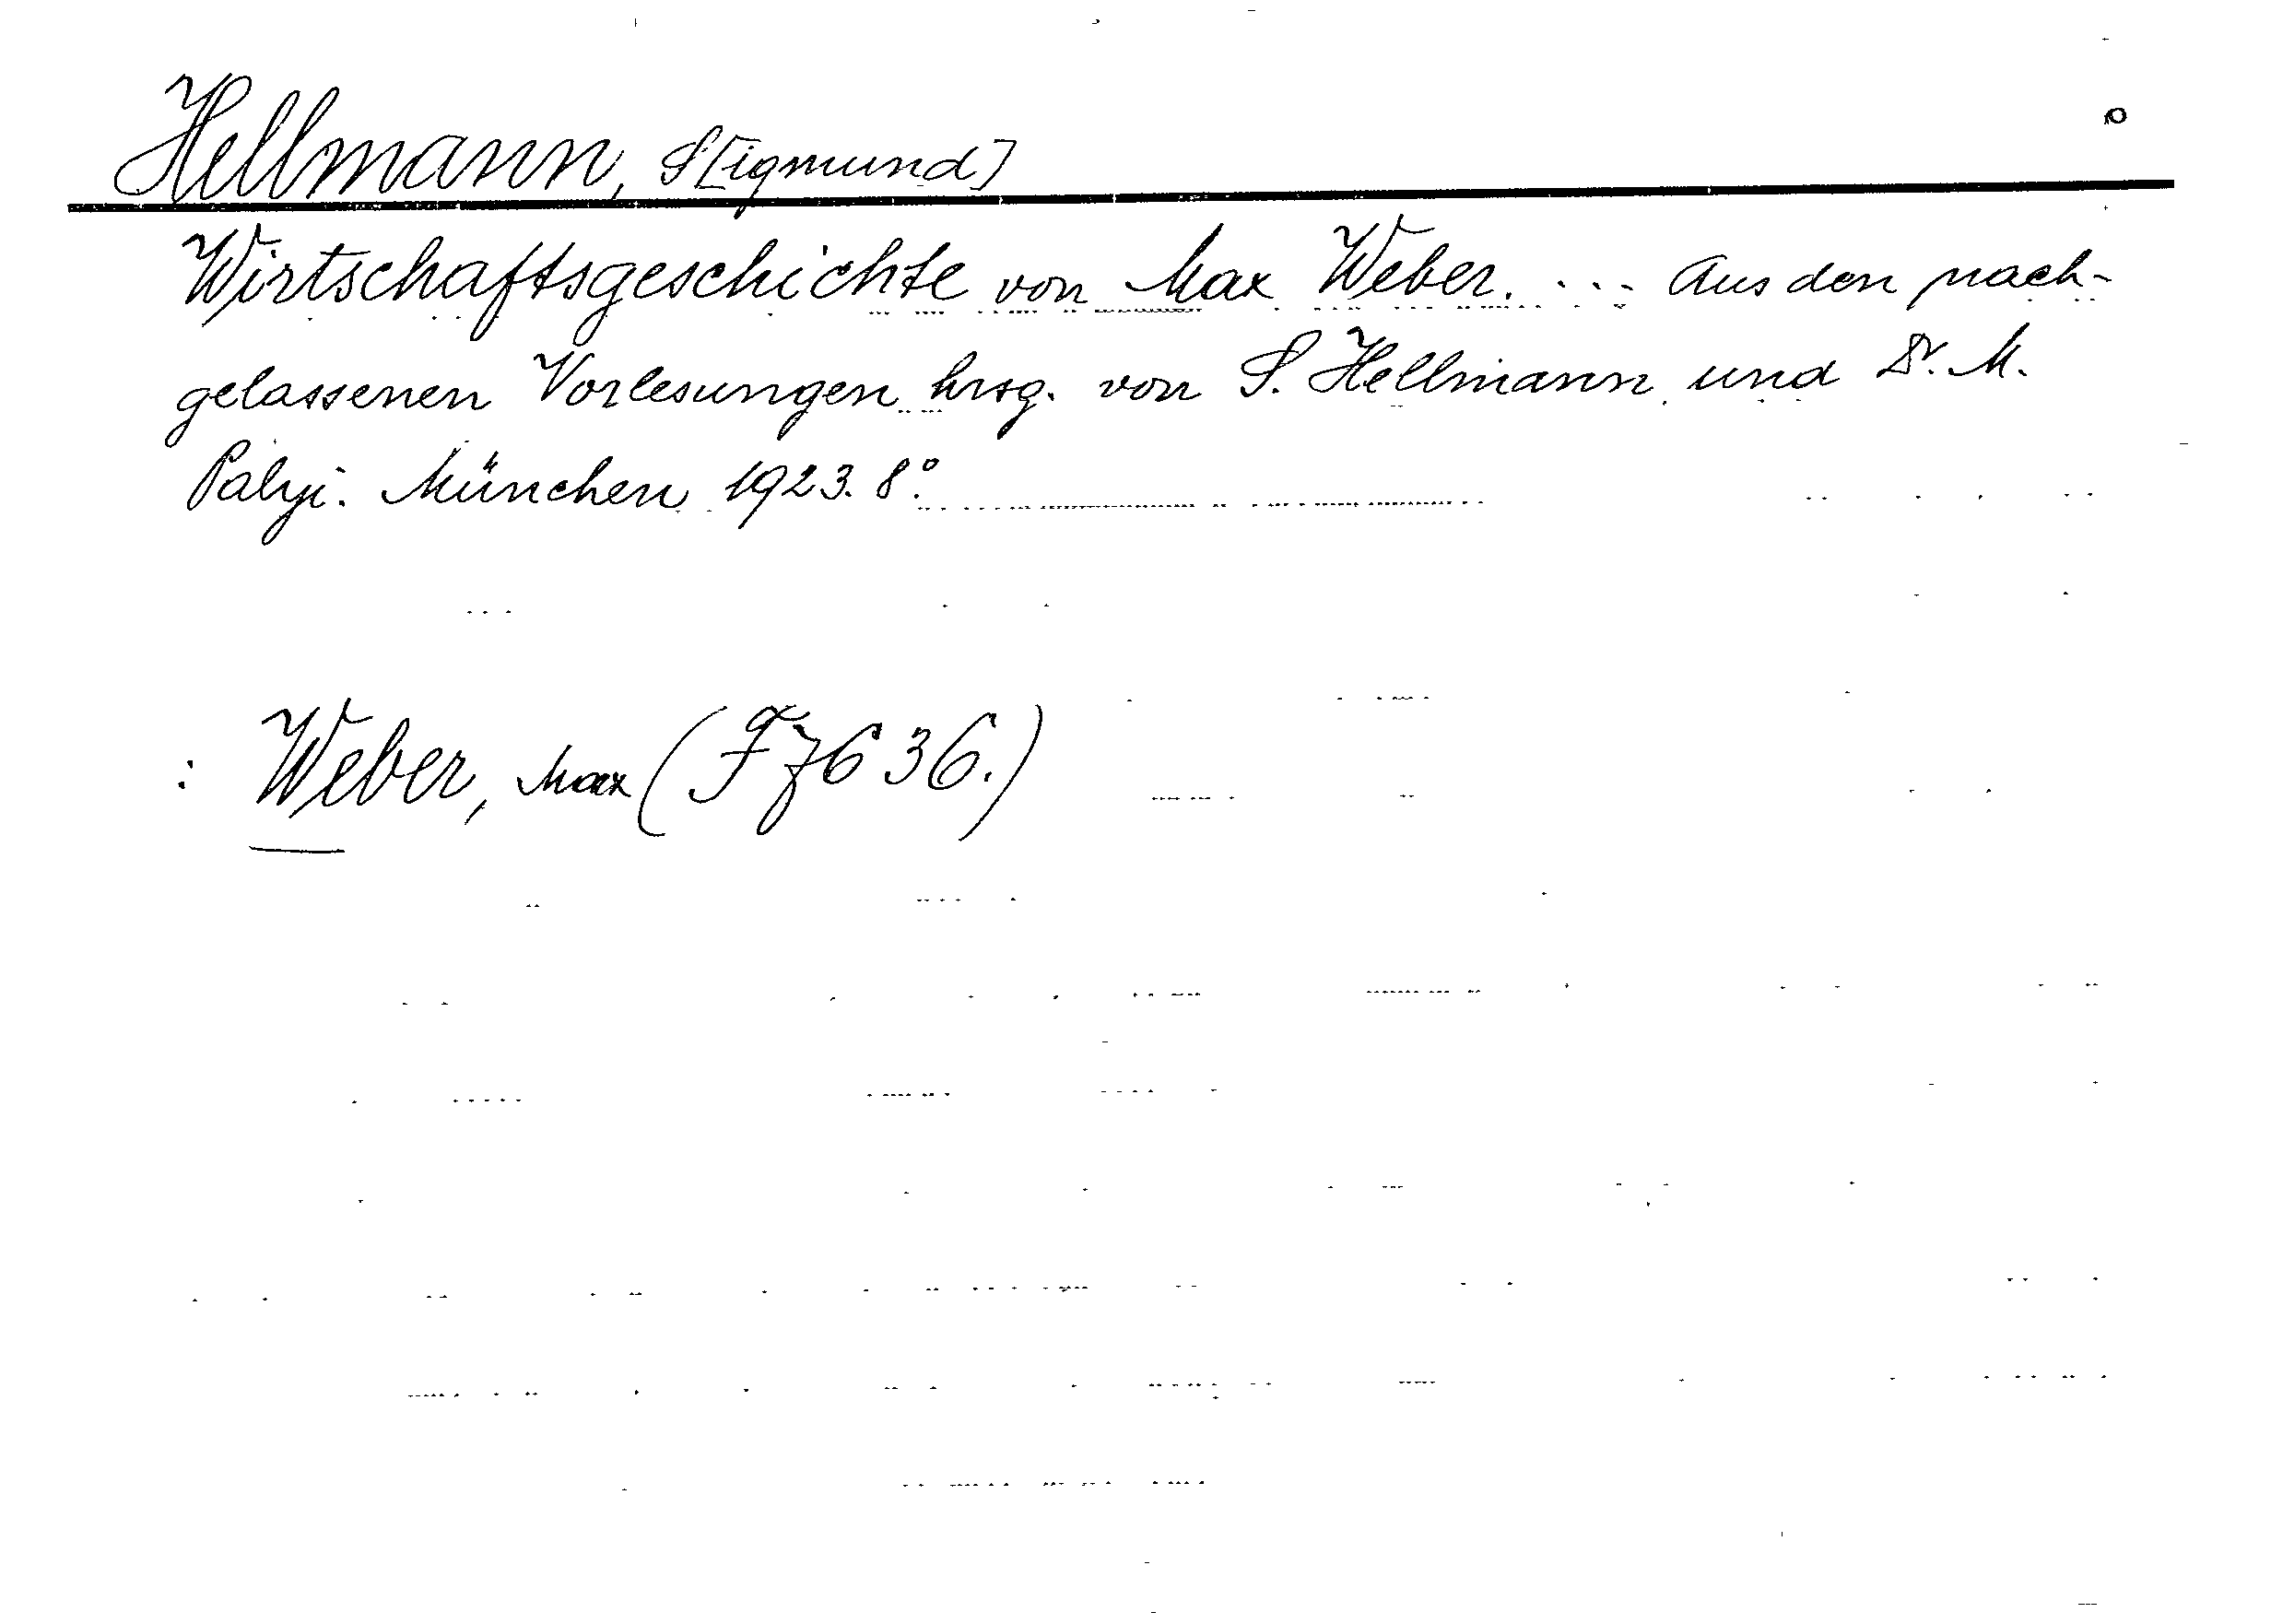 Hellmann, S[igmund]
Wirtschaftsgeschichte von Max Weber. ... Aus den nach-
gelassenen Vorlesungen hrsg. von S. Hellmann und Dr. M.
Palyi. München 1923. 8°.
: Weber, Max (F7636.)